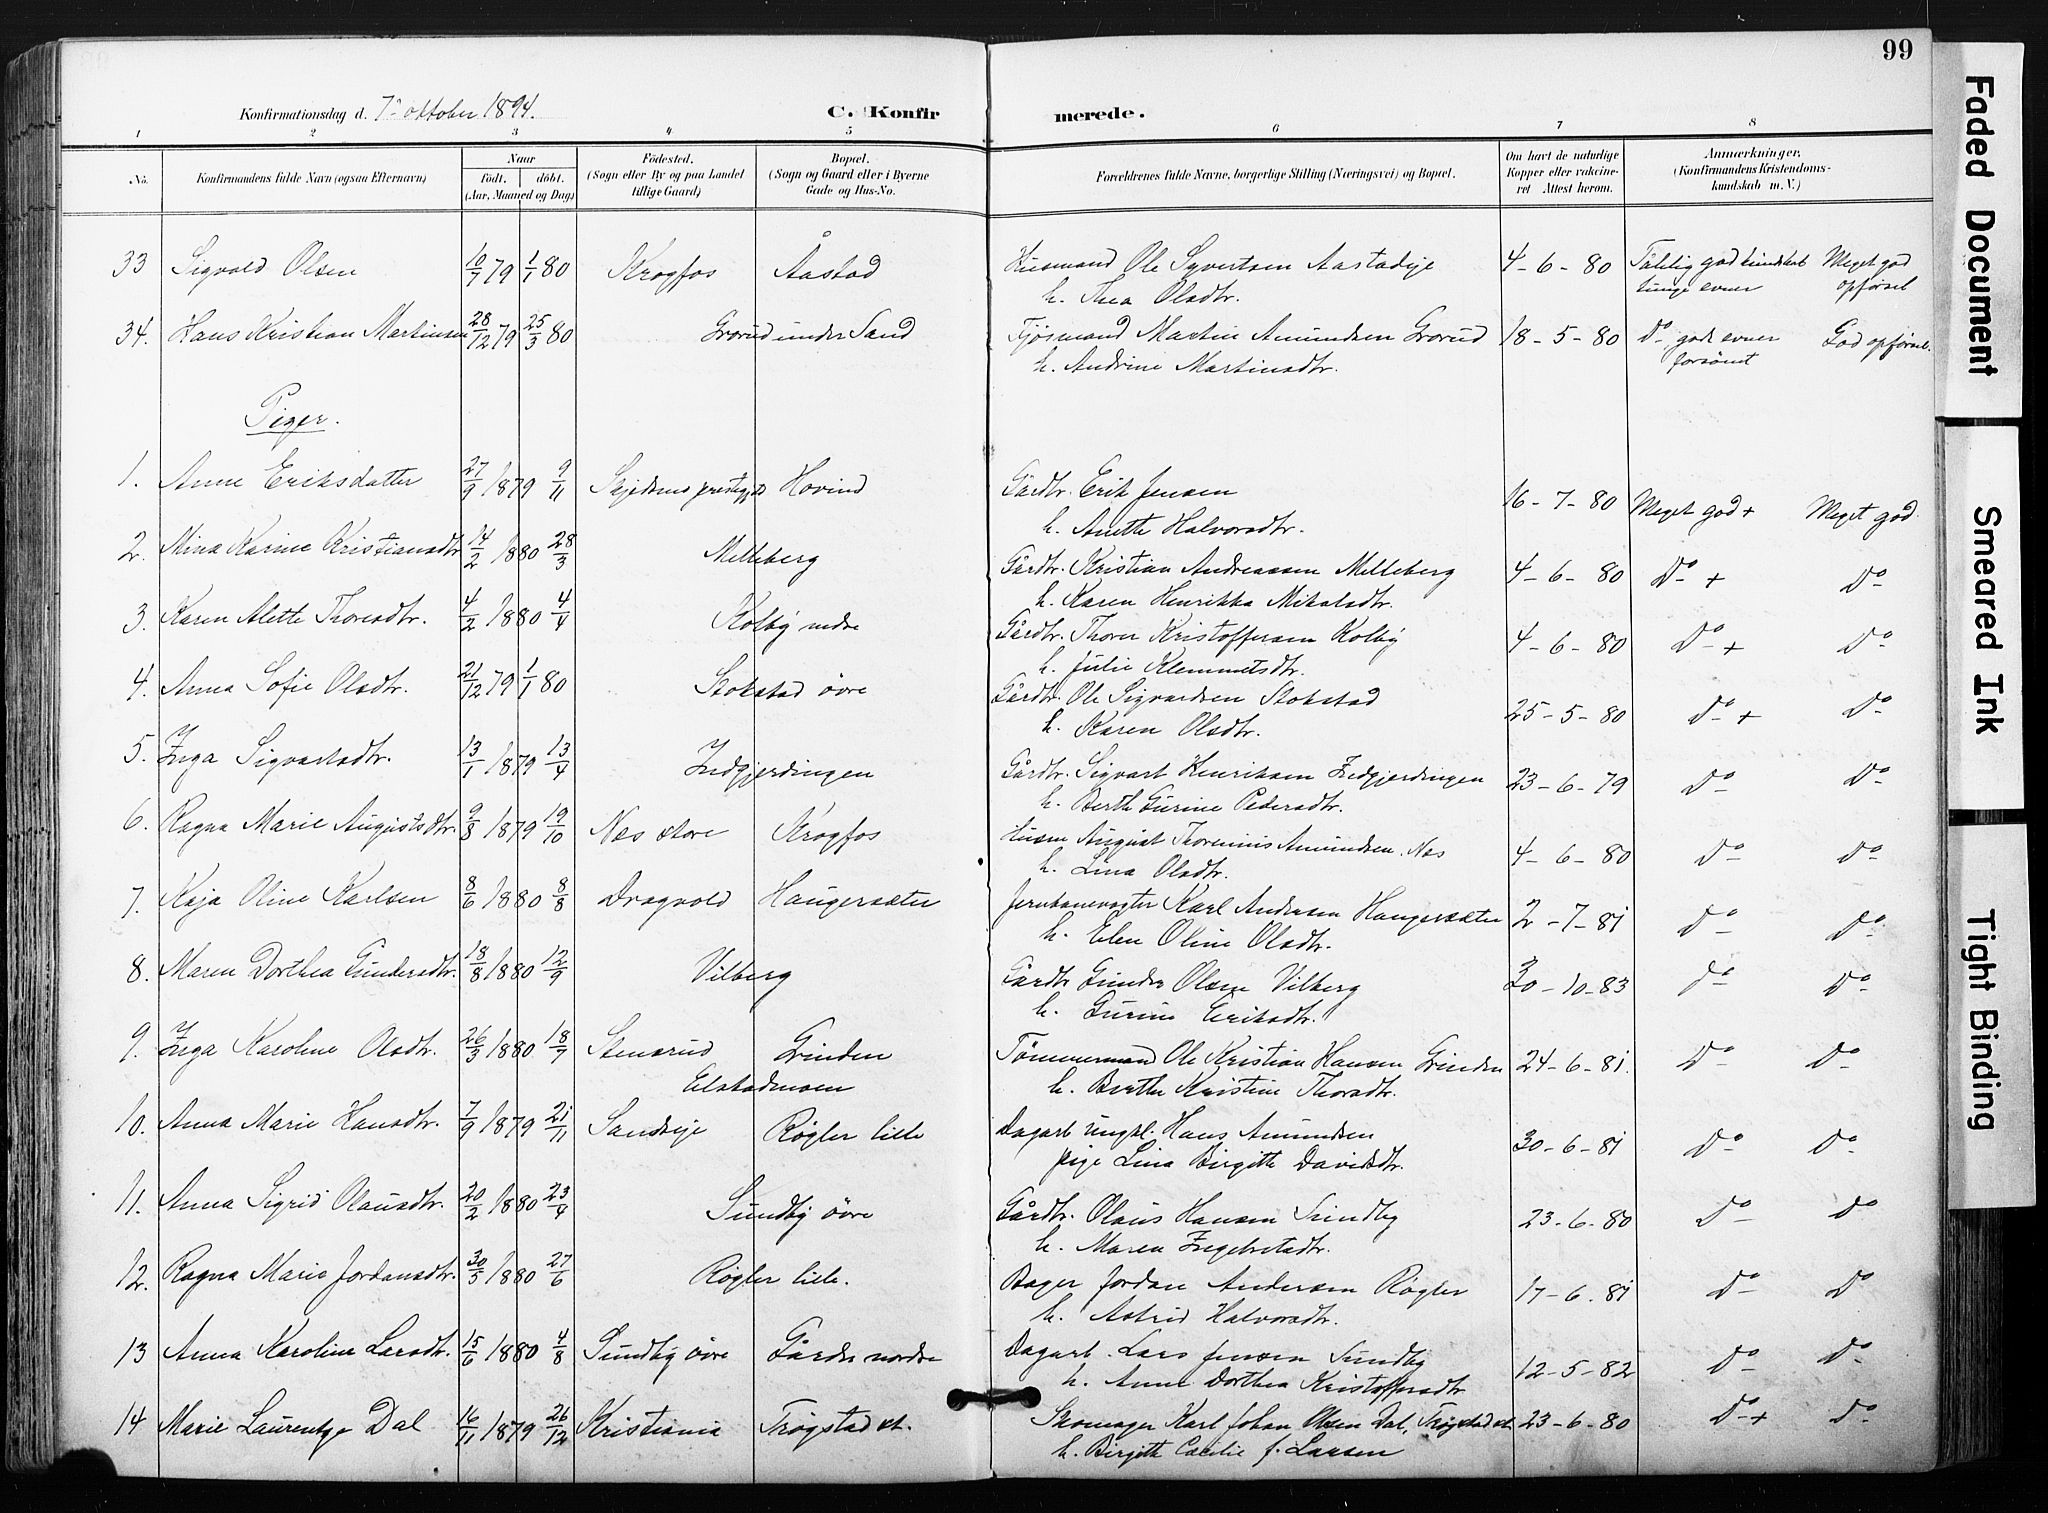 99
Konfirmationsdag d. 7de oktober 1894. C. Konfirmerede.
1 2 3 4 5 6 7 8
No. Konfirmandens fulde Navn (ogsaa Efternavn) Naar Født. døbt. (Aar, Maaned og Dag) Fødested. (Sogn eller By og paa Landet tillige Gaard) Bopæl. (Sogn og Gaard eller i Byerne Gade og Hus-No. Forældrenes fulde Navne, borgerlige Stilling (Næringsvei) og Bopæl. Om havt de naturlige Kopper eller vaccineret Attest herom. Anmærkninger, (Konfirmandens Kristendomskundskab m. V.)
33 Sigvald Olsen 10/7 79 1/1 80 Krogfos Åastad Husmand Ole Syvertsen Aastadeje 4-6-80 Tålelig god kundskab Meget god
h. Thea Olsdtr. tunge evner opførsel
34. Hans Kristian Martinsen 28/12 79 25/3 80 Grorud under Sand Fjøsmand Martin Amundsen Grorud 18-5-80 Do, gode evner God opførsel.
h. Andrine Martinsdtr. forsømt
Piger.
1. Anne Eriksdatter 27/9 1879 9/11 Hovind Gårdbr. Erik Jensen 16-7-80 Meget god + Meget god
h. Anette Halvorsdtr.
2. Mina Karine Kristiansdtr 14/2 1880 28/3 Melleberg Gårdbr. Kristian Andreassen Melleberg 4-6-80 Do + Do
h. Karen Henrikka Mikalsdtr.
3. Karen Alette Thorsdtr. 4/2 1880 4/4 Kolby nedre Gårdbr. Thorer Kristoffersen Kolby 4-6-80 Do + Do
h. Julie Klemmetsdtr.
4. Anna Sofie Olsdtr. 21/12 79 1/1 80 Stokstad øvre Gårdbr. Ole Sigvardsen Stokstad 25-5-80 Do + Do
h. Karen Olsdtr.
5. Inga Sigvartsdtr. 13/1 1879 13/4 Indgjerdingen Gårdbr. Sigvart Henriksen Indgjerdingen 23-6-79 Do Do
h. Berth Gurine Pedersdtr.
6. Ragna Marie Augustsdtr. 9/8 1879 19/10 Nes store Krogfos Husm August Amundsen Nes 4-6-80 Do Do
h. Lina Olsdtr.
7. Kaja Oline Karlsen 8/6 1880 8/8 Dragvold Haugersæter Jernbanevogter Karl Andersen Haugersæter 2-7-81 Do Do
h. Elen Oline Olsdtr.
8. Maren Dorthea Gundersdtr. 18/8 1880 12/9 Vilberg Gårdbr Gunder Olsen Vilberg 30-10-83 Do Do
h. Gurine Eriksdtr.
9. Inga Karoline Olsdtr. 26/3 1880 18/7 Stensrud Grinden Tømmermand Ole Kristian Hansen Grinden 24-6-81. Do Do
Elstadmoen h. Berthe Kristine Thorsdtr.
10. Anna Marie Hansdtr. 7/9 1879 21/11 Sandseje Røgler lille Dagarb. ungkl. Hans Amundsen 30-6-81 Do Do
pige Lina Birgitte Davidsdtr.
11. Anna Sigrid Olausdtr. 20/2 1880 23/4 Sundby øvre Gårdbr. Olaus Hansen Sundby 23-6-80 Do Do
h. Maren Ingebretsdtr.
12. Ragna Marie Jordansdtr. 30/5 1880 27/6 Røgler lille. Bager Jordan Andersen Røgler 17-6-81 Do Do
h. Astrid Halvorsdtr.
13 Anna Karoline Larsdtr. 15/6 1880 4/8 Sundby øvre Gårder nordre Dagarb. Lars Jensen Sundby 12-5-82 Do Do
h. Anne Dorthea Kristoffersdtr
14 Marie Laurentze Dal 16/11 1879 26/12 Kristiania Trøgstad st. Skomager Karl Johan Olsen Dal, Trøgstad st. 23-6-80 Do + Do
h. Birgitte Cæcilie f. Larsen
Faded Document
Smeared Ink
Tight Binding